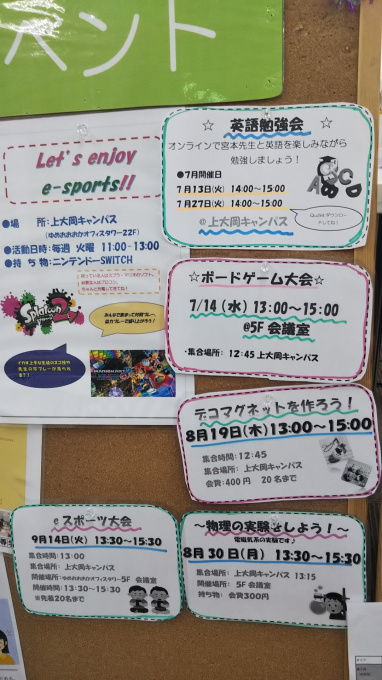 ベント
Let's enjoy
e-sports!!
●場　所:上大岡キャンパス
(ゆめおおおかオフィスタワー22F)
●活動日時:毎週 火曜 11:00-13:00
●持ち物:ニンテンドーSWITCH
Splatoon 2
☆ 英語勉強会 ☆
オンラインで宮本先生と英語を楽しみながら
勉強しましょう!
●7月開催日
7月13日(火) 14:00～15:00
7月27日(火) 14:00～15:00
@上大岡キャンパス
ABCD
☆ボードゲーム大会☆
7/14(水) 13:00～15:00
@5F 会議室
・集合場所: 12:45 上大岡キャンパス
デコマグネットを作ろう!
8月19日(木)13:00～15:00
集合時間:12:45
集合場所: 上大岡キャンパス
会費:400円 20名まで
eスポーツ大会
9月14日(火) 13:30～15:30
集合時間:13:00
集合場所: 上大岡キャンパス
開催場所:ゆめおおおかオフィスタワー5F 会議室
開催時間:13:30～15:30
※先着20名まで
～物理の実験をしよう!～
電磁気系の実験です♪
8月30日(月) 13:30～15:30
集合場所: 上大岡キャンパス 13:15
開催場所: 5F 会議室
持ち物: 会費300円